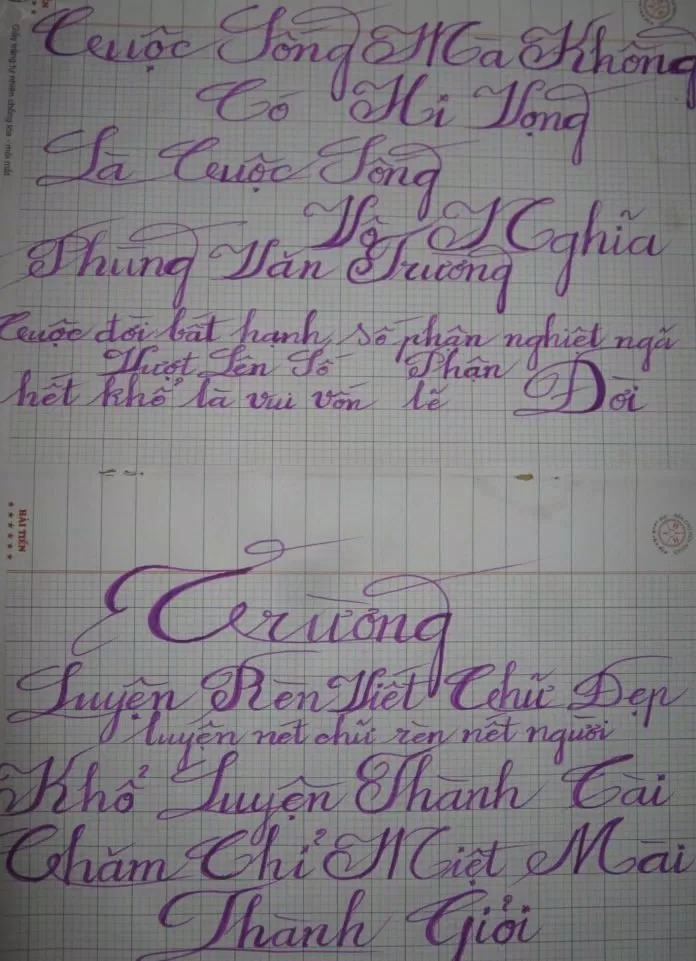 Cuộc Sống Mà Không
Có Hi Vọng
Là Cuộc Sống
Vô Nghĩa
Phùng Văn Trường
Cuộc đời bất hạnh, số phận nghiệt ngã
Vượt Lên Số Phận Đời
hết khổ là vui vốn lẽ
HẢI TIẾN
Trường
Luyện Rèn Viết Chữ Đẹp
luyện nét chữ rèn nét người
Khổ Luyện Thành Tài
Chăm Chỉ Miệt Mài
Thành Giỏi